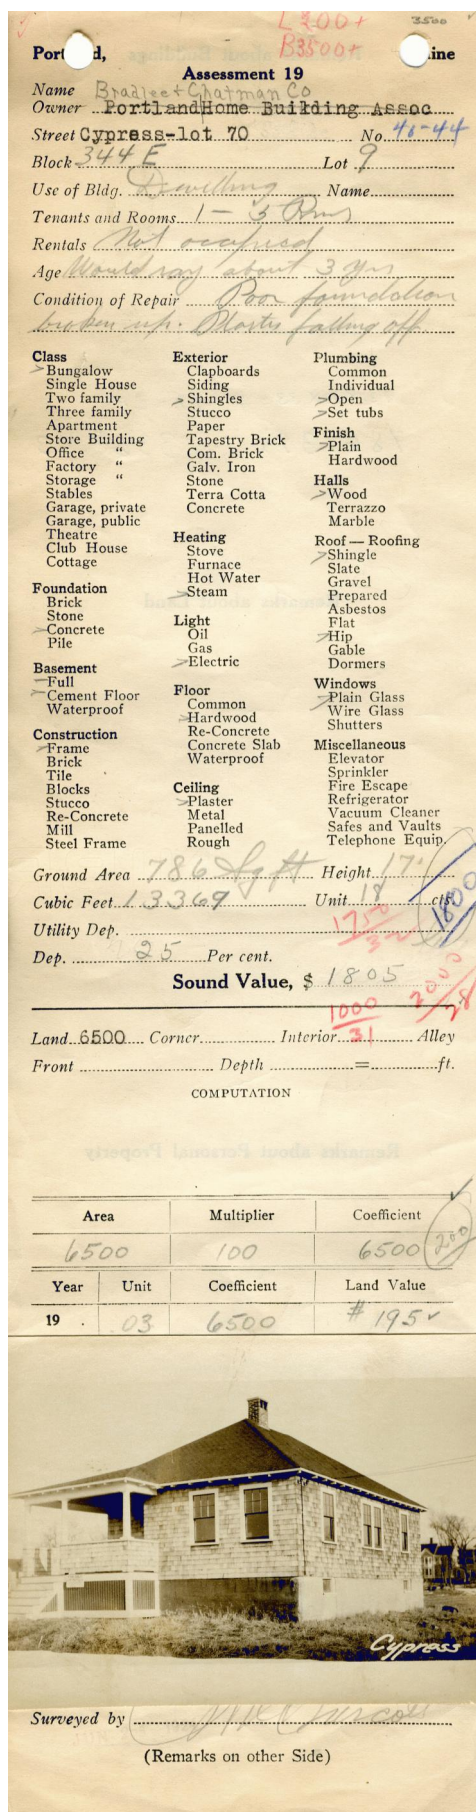 L 200+
3500
B 3500+
Portland, Maine
Assessment 19
Name Bradlee + Chatman Co
Owner PortlandHome Building Assoc
Street Cypress-lot 70 No 40-44
Block 344 E Lot 9
Use of Bldg. Dwelling Name
Tenants and Rooms 1 - 5 Rms
Rentals Not occupied
Age Would say about 3 yrs
Condition of Repair Poor foundation
broken up. Plaster falling off.
Class
Bungalow
Single House
Two family
Three family
Apartment
Store Building
Office "
Factory "
Storage "
Stables
Garage, private
Garage, public
Theatre
Club House
Cottage
Foundation
Brick
Stone
Concrete
Pile
Basement
Full
Cement Floor
Waterproof
Construction
Frame
Brick
Tile
Blocks
Stucco
Re-Concrete
Mill
Steel Frame
Exterior
Clapboards
Siding
Shingles
Stucco
Paper
Tapestry Brick
Com. Brick
Galv. Iron
Stone
Terra Cotta
Concrete
Heating
Stove
Furnace
Hot Water
Steam
Light
Oil
Gas
Electric
Floor
Common
Hardwood
Re-Concrete
Concrete Slab
Waterproof
Ceiling
Plaster
Metal
Panelled
Rough
Plumbing
Common
Individual
Open
Set tubs
Finish
Plain
Hardwood
Halls
Wood
Terrazzo
Marble
Roof — Roofing
Shingle
Slate
Gravel
Prepared
Asbestos
Flat
Hip
Gable
Dormers
Windows
Plain Glass
Wire Glass
Shutters
Miscellaneous
Elevator
Sprinkler
Fire Escape
Refrigerator
Vacuum Cleaner
Safes and Vaults
Telephone Equip.
Ground Area 786 Sq ft Height 17'
Cubic Feet 13369 Unit 18 cts.
1800
Utility Dep.
1750
32
Dep. 25 Per cent.
Sound Value, $ 1805
2000
28
1000
31
Land 6500 Corner Interior Alley
Front Depth = ft.
COMPUTATION
Area Multiplier Coefficient
6500 100 6500 200
Year Unit Coefficient Land Value
19 .03 6500 # 195
Cypress
Surveyed by
(Remarks on other Side)